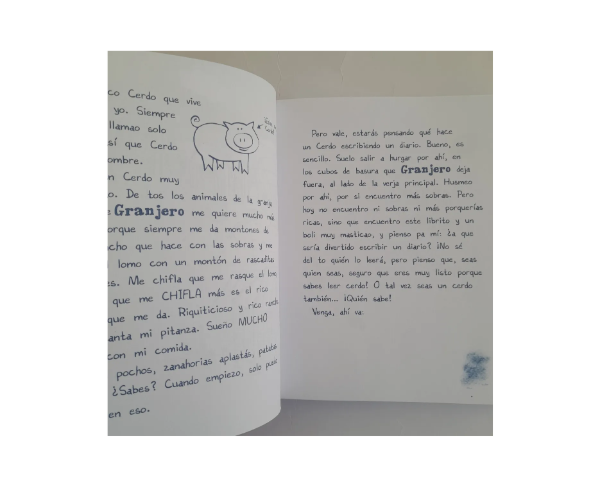 co Cerdo que vive
yo. Siempre
llamao solo
sí que Cerdo
ombre.
n Cerdo muy
o. De tos los animales de la granja
Granjero me quiere mucho más
orque siempre me da montones de
cho que hace con las sobras y me
lomo con un montón de rascaítas
es. Me chifla que me rasque el lomo
que me CHIFLA más es el rico
que me da. Riquiticioso y rico rancho
anta mi pitanza. Sueño MUCHO
con mi comida.
pochos, zanahorias aplastás, patatas
¿Sabes? Cuando empiezo, solo puedo
en eso.
Pero vale, estarás pensando qué hace
un Cerdo escribiendo un diario. Bueno, es
sencillo. Suelo salir a hurgar por ahí, en
los cubos de basura que Granjero deja
fuera, al lado de la verja principal. Husmeo
por ahí, por si encuentro más sobras. Pero
hoy no encuentro ni sobras ni más porquerías
ricas, sino que encuentro este librito y un
boli muy masticao, y pienso pa mí: ¿a que
sería divertido escribir un diario? ¡No sé
del to quién lo leerá, pero pienso que, seas
quien seas, seguro que eres muy listo porque
sabes leer cerdo! O tal vez seas un cerdo
también... ¡Quién sabe!
Venga, ahí va: